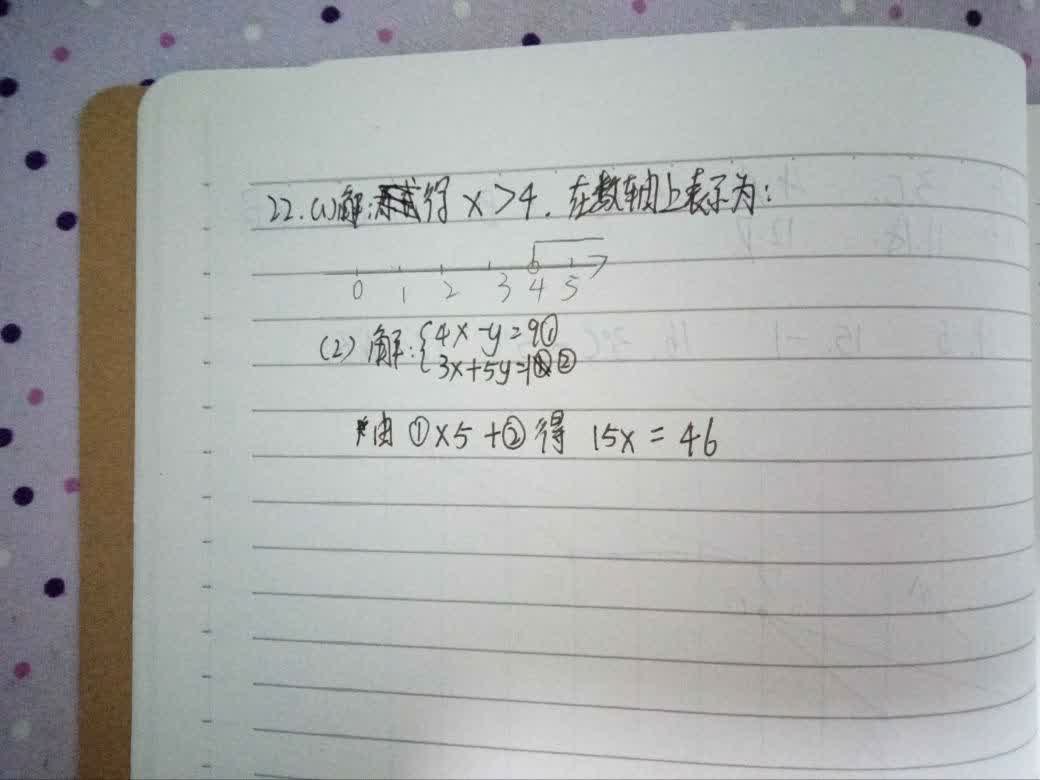 22.(1)解:得 x>4. 在数轴上表示为:
0 1 2 3 4 5
(2) 解:{4x-y=9①
3x+5y=1②
由 ①x5+②得 15x=46